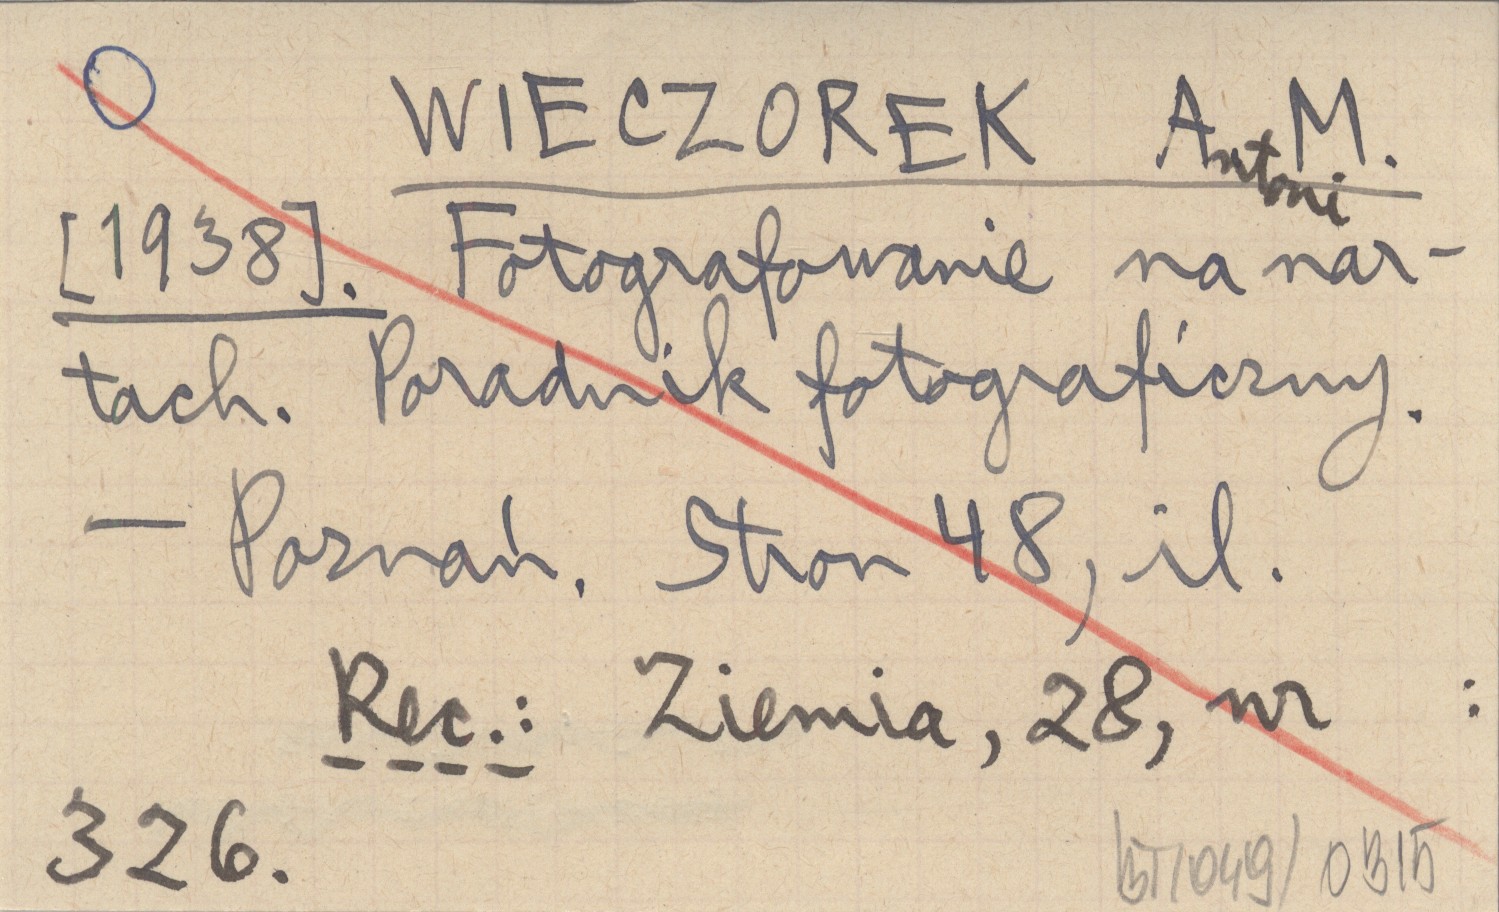 WIECZOREK A. M.
Antoni
[1938]. Fotografowanie na nar-
tach. Poradnik fotograficzny.
— Poznań. Stron 48, il.
Rec.: Ziemia, 28, nr :
326.